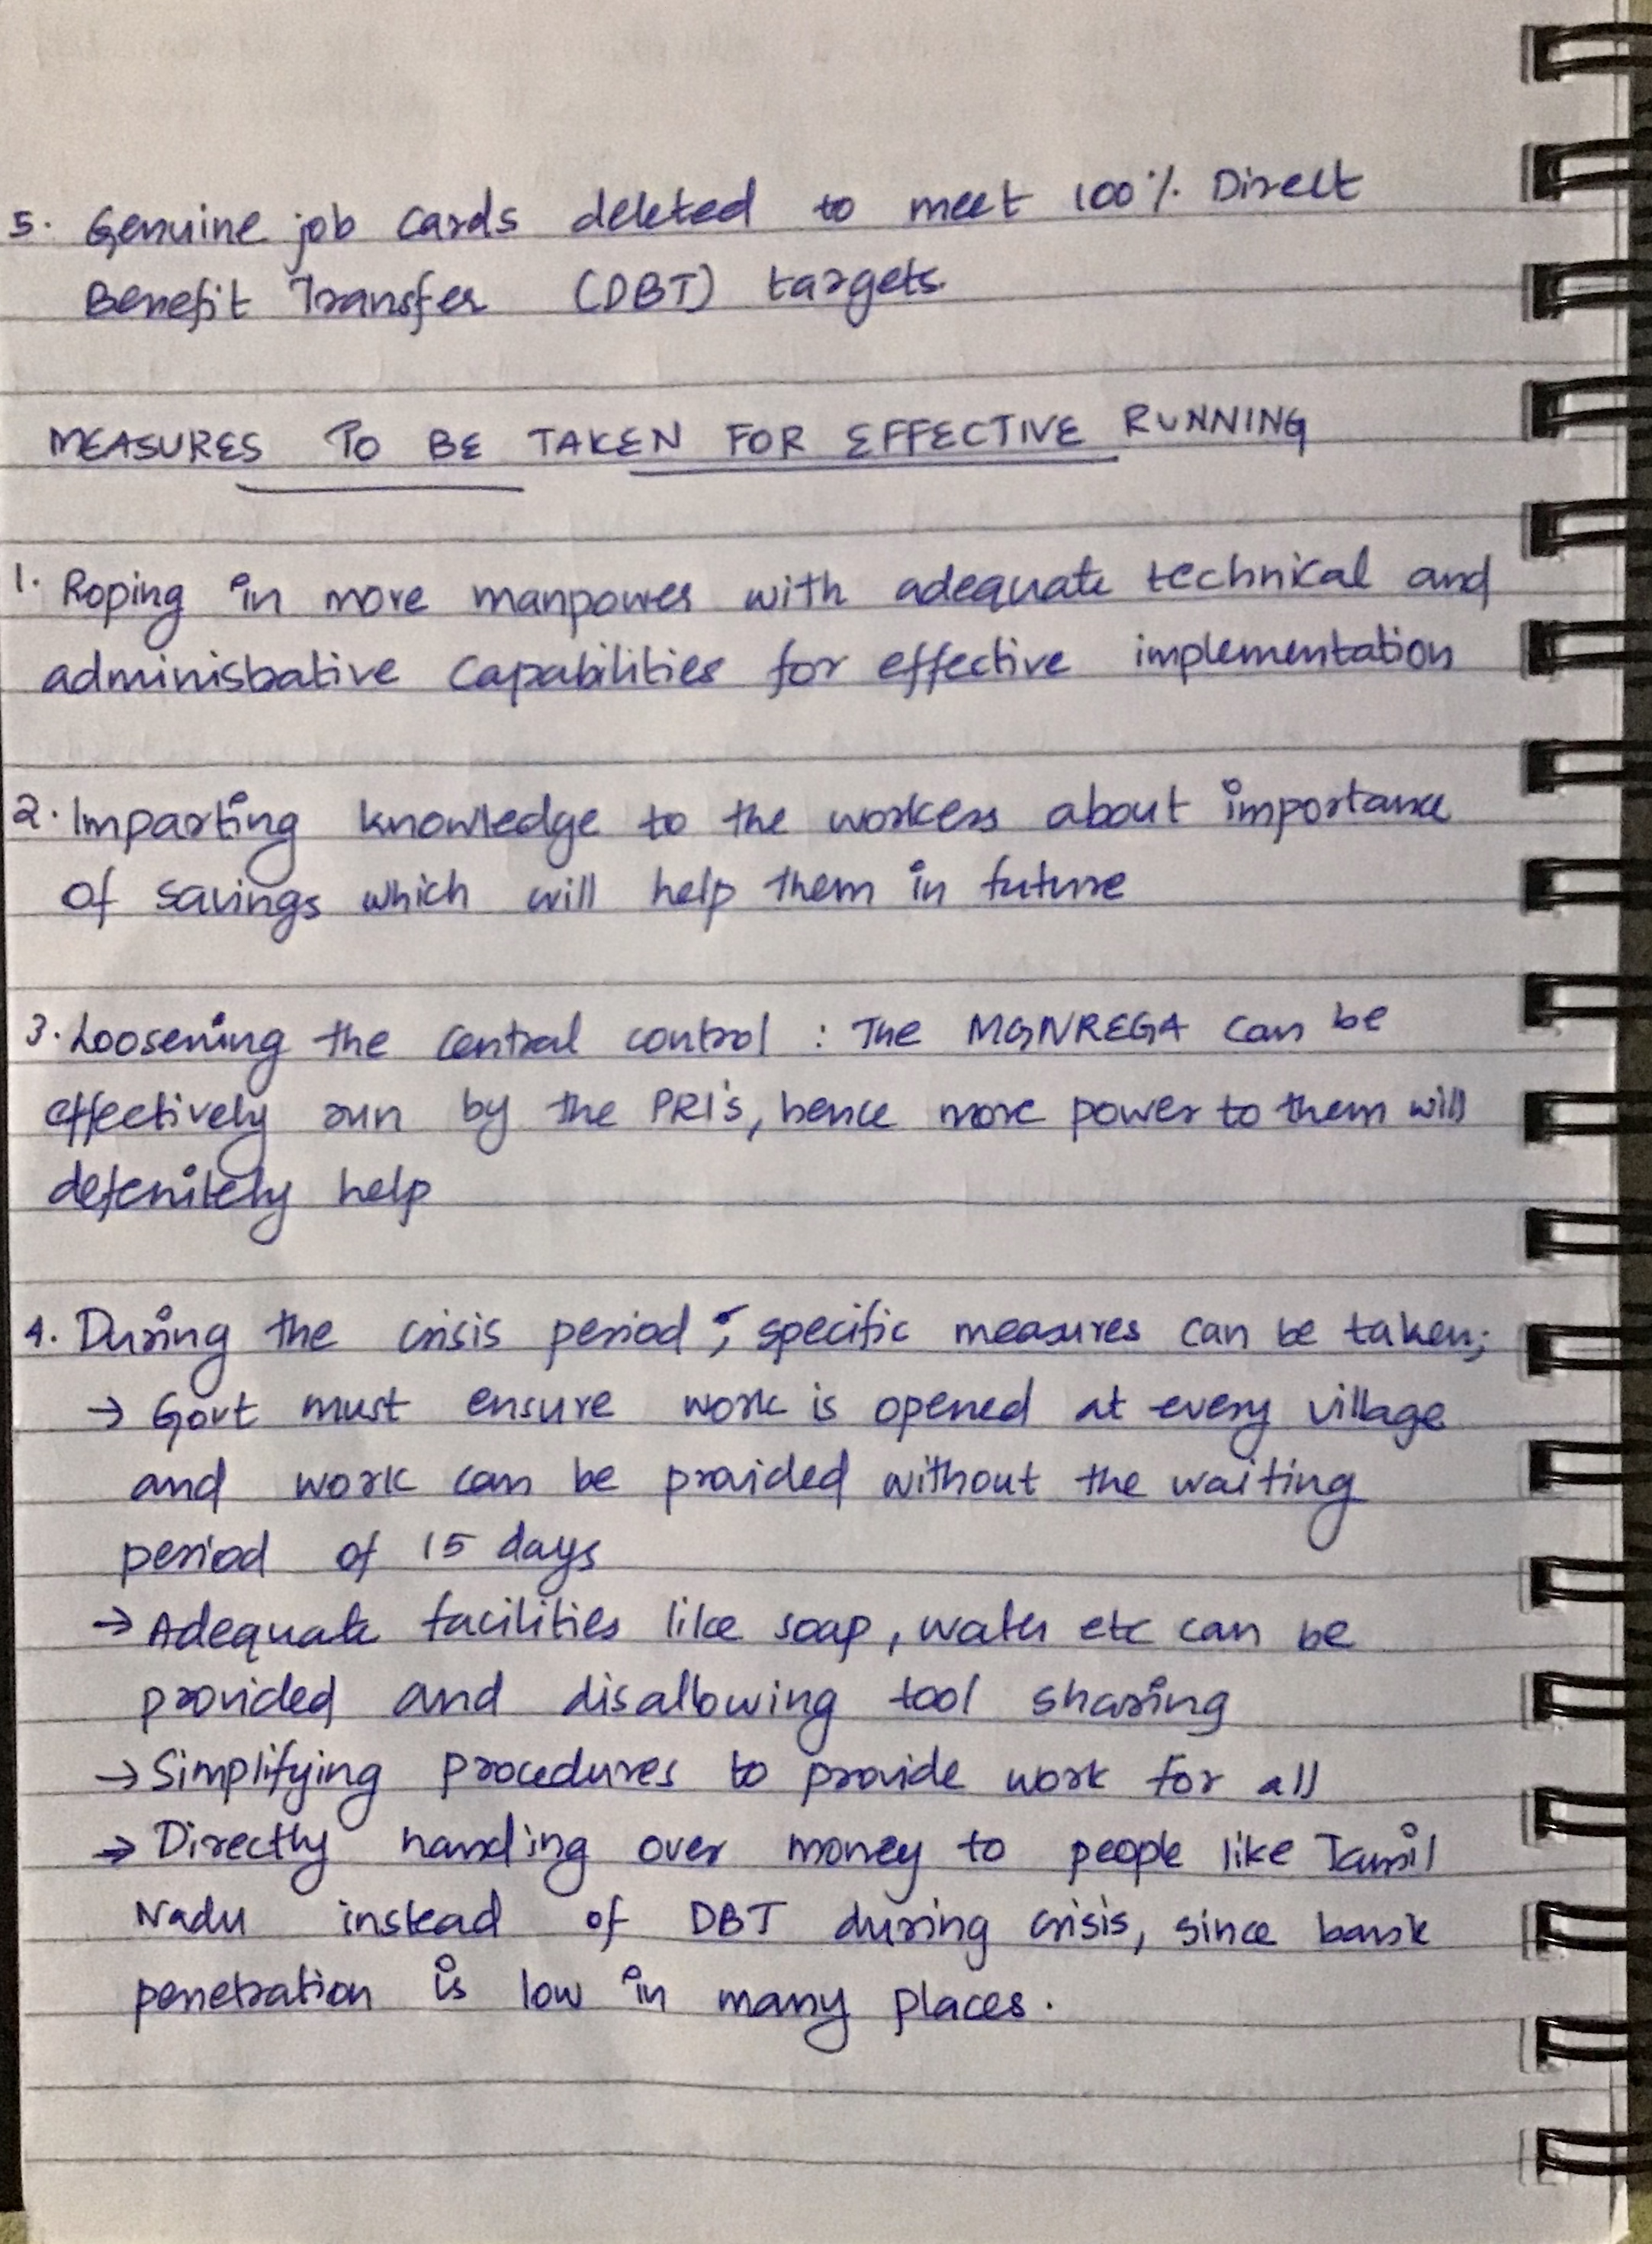 5. Genuine job cards deleted to meet 100% Direct
Benefit Transfer (DBT) targets.
MEASURES TO BE TAKEN FOR EFFECTIVE RUNNING
1. Roping in more manpower with adequate technical and
administrative capabilities for effective implementation
2. Imparting knowledge to the workers about importance
of savings which will help them in future
3. Loosening the central control : The MGNREGA can be
effectively run by the PRI's, hence more power to them will
defenitely help
4. During the crisis period, specific measures can be taken;
→ Govt must ensure work is opened at every village
and work can be provided without the waiting
period of 15 days
→ Adequate facilities like soap, water etc can be
provided and disallowing tool sharing
→ Simplifying procedures to provide work for all
→ Directly handing over money to people like Tamil
Nadu instead of DBT during crisis, since bank
penetration is low in many places.